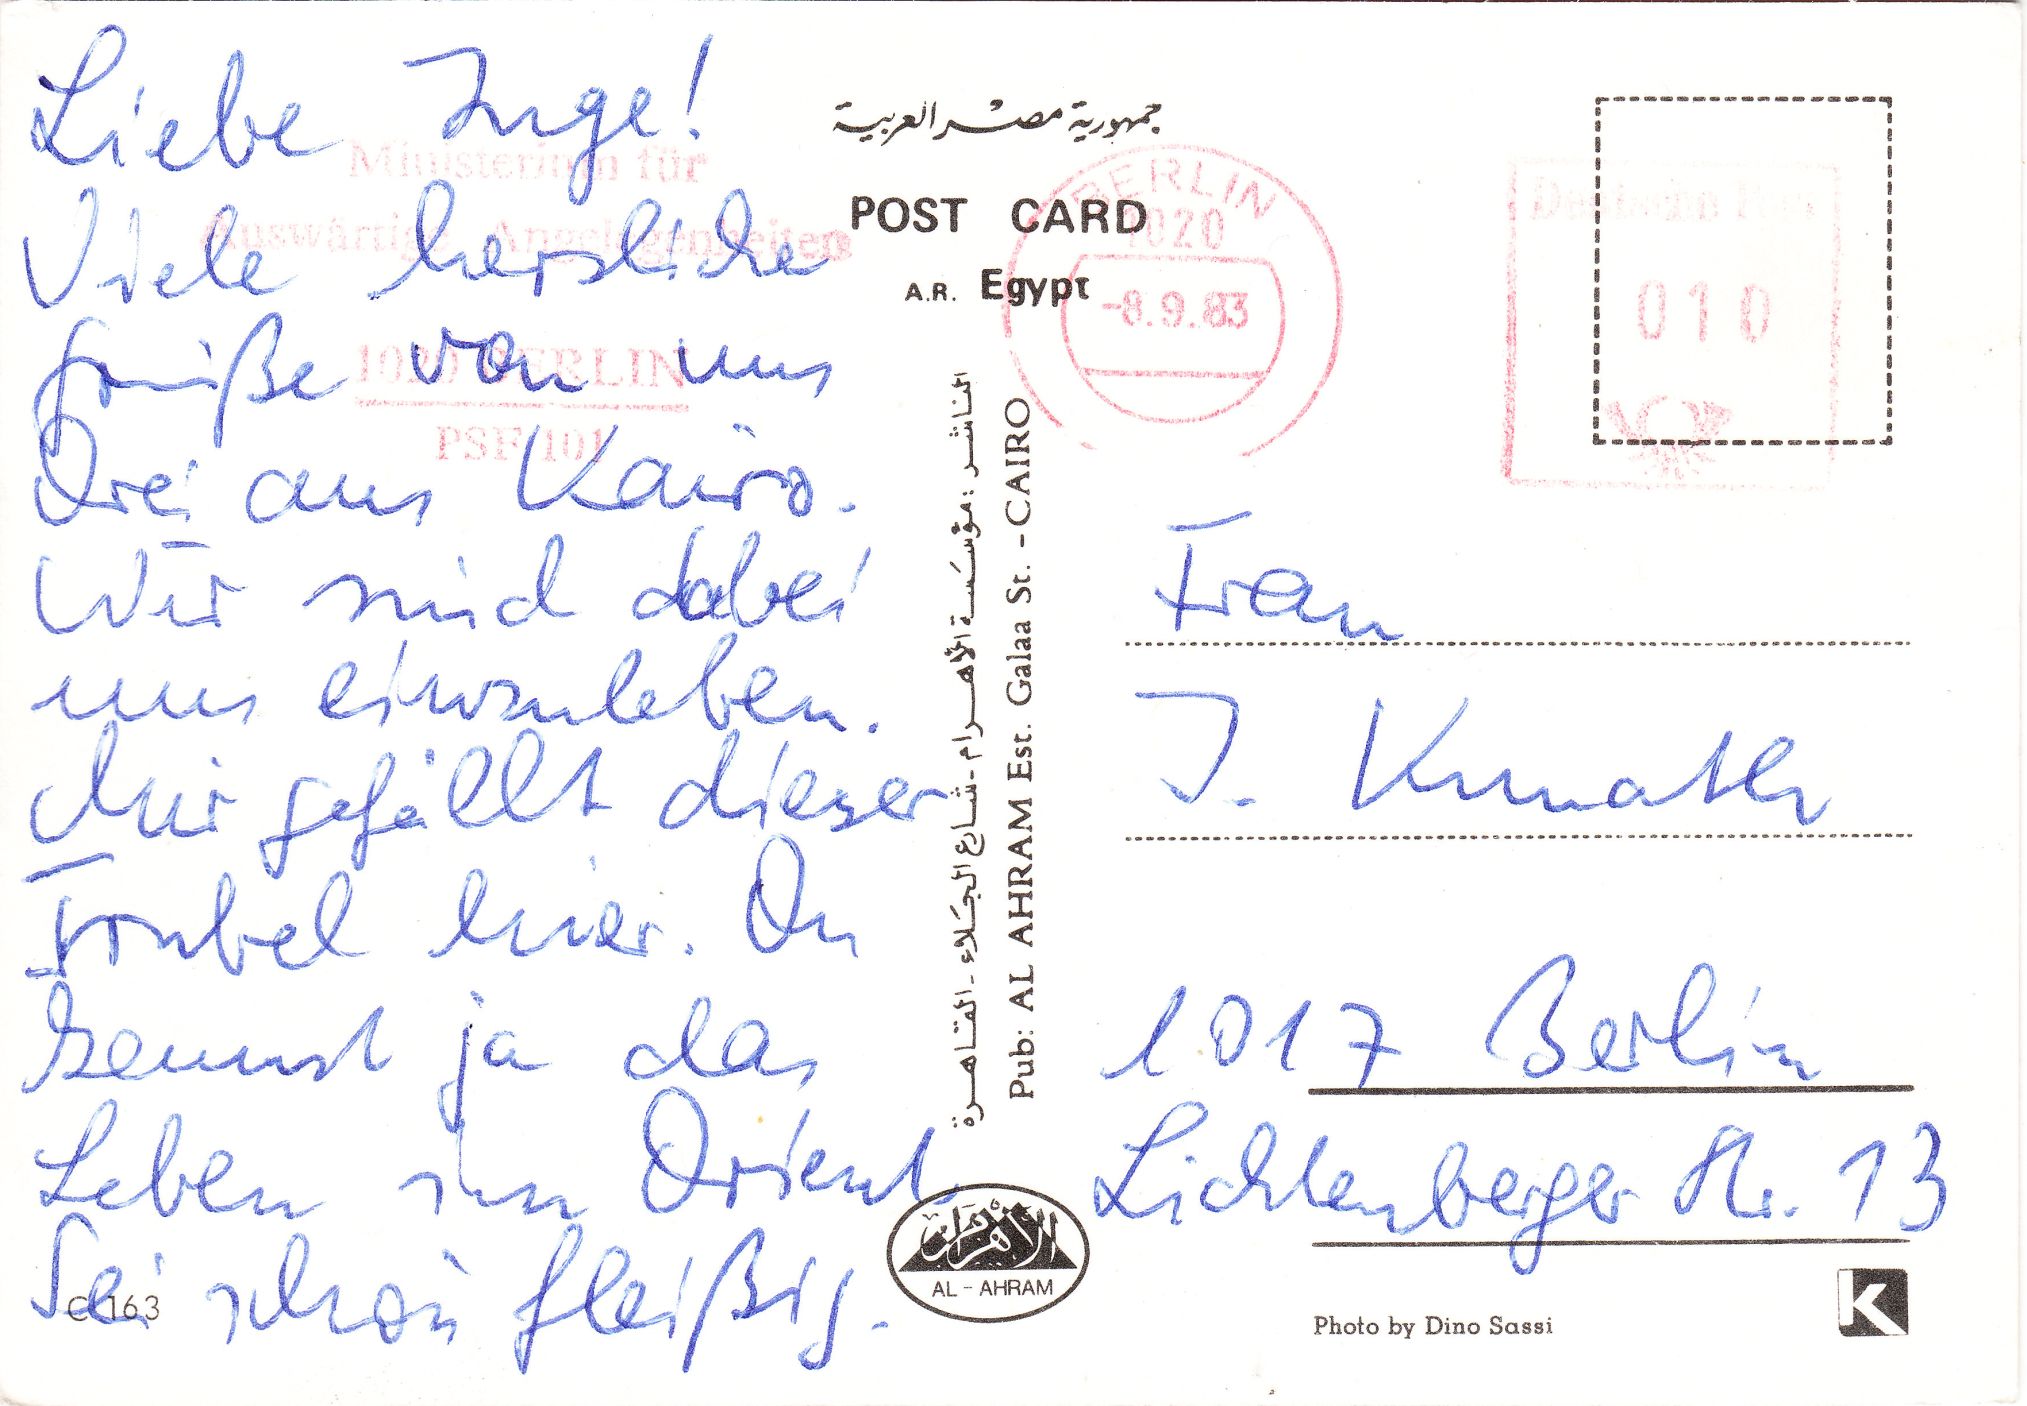 Liebe Inge!
Viele herzliche
Grüße von uns
Drei aus Kairo.
Wir sind dabei
uns einzuleben.
Mir gefällt dieser
Trubel hier. Du
kennst ja das
Leben im Orient.
Sei schön fleißig.
C 163
Ministerium für
Auswärtige Angelegenheiten
1020 BERLIN
PSF 101
جمهورية مصر العربية
POST CARD
A.R. Egypt
BERLIN
1020
-8.9.83
Deutsche Post
010
الناشر : مؤسسة الأهرام - شارع الجلاء - القاهرة
Pub: AL AHRAM Est. Galaa St. - CAIRO
Frau
I. Kunath
1017 Berlin
Lichtenberger Str. 13
الأهرام
AL - AHRAM
Photo by Dino Sassi
K